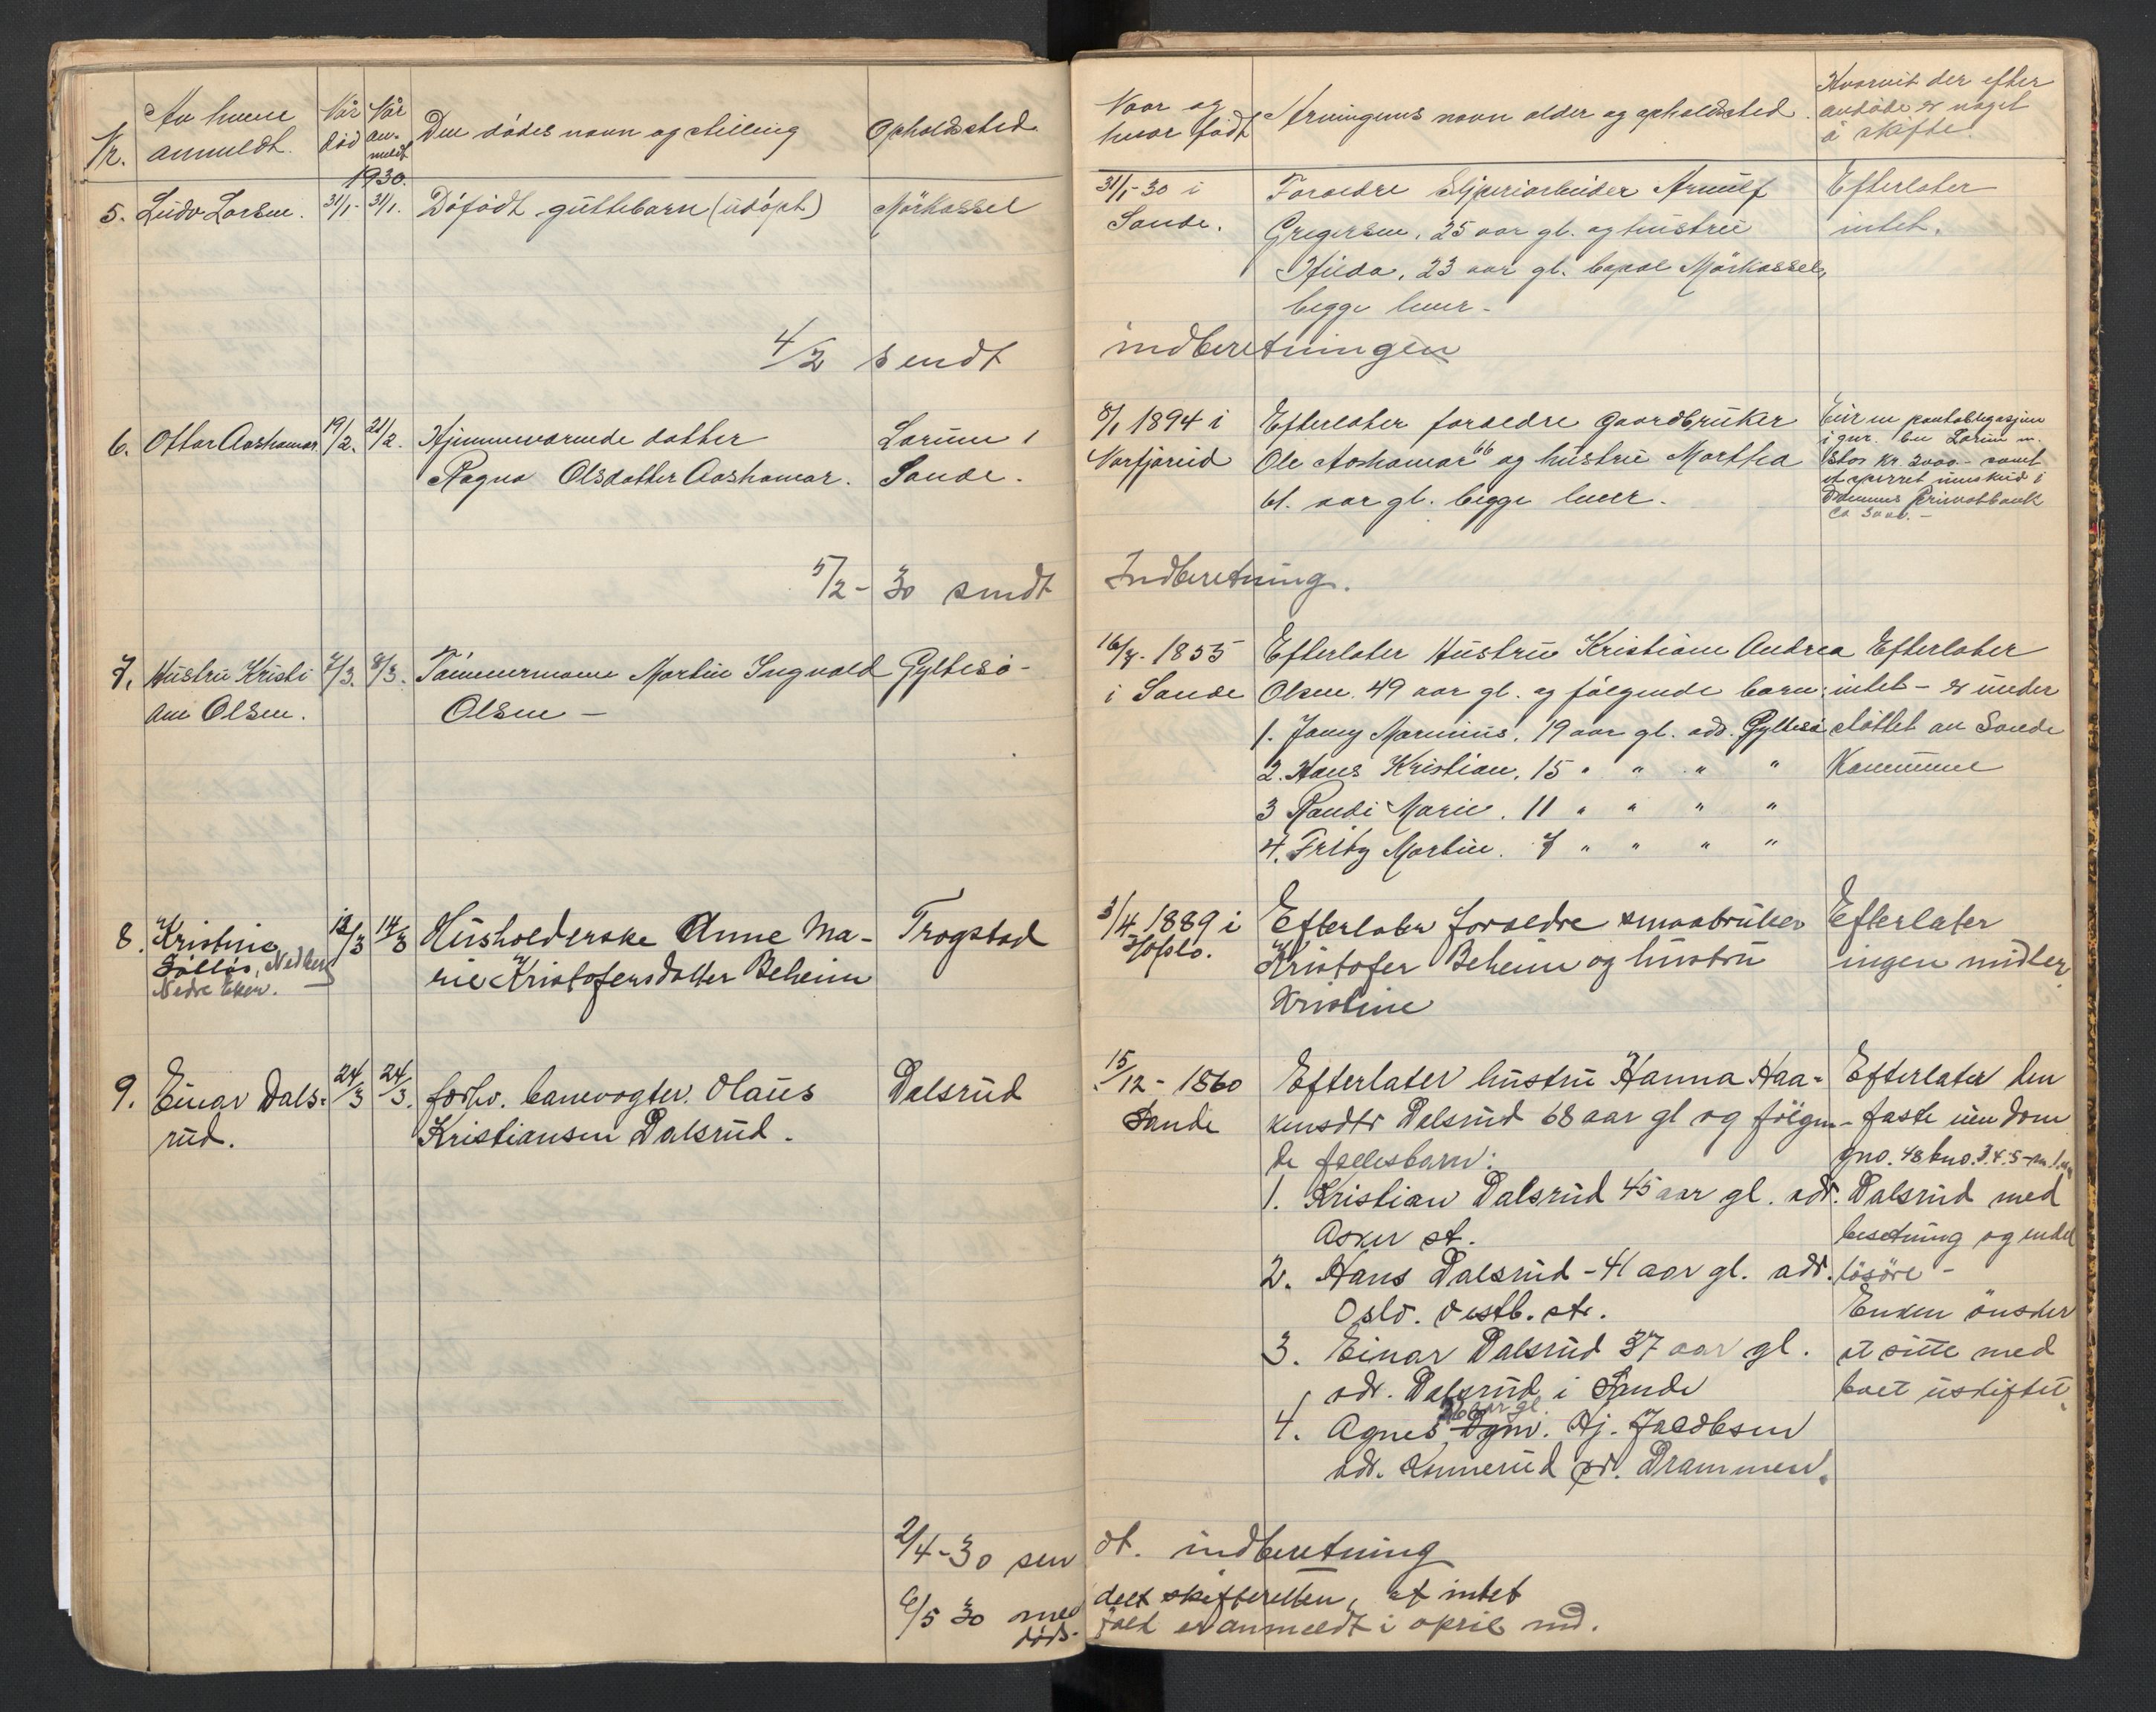 Nr.
Av hvem anmeldt.
Når død
Når anmeldt
Den dødes navn og stilling
Opholdssted
Naar og hvor født
Arvingens navn alder og opholdssted.
Hvorvit der efter
avdøde er noget
å skifte.
1930.
5. Ludv Larsen. 31/1- 31/1. Dőfődt guttebarn (udőpt) Mörkassel
31/1-30 i
Sande.
Foraeldre Arnulf
Gregersen, 25 aar gl. og hustru
Hilda, 23 aar gl. Mörkassel,
begge lever-
Efterlater
intet.
4/2 sendt indberetningen
6. Ottar Aashamar 19/2. 21/2. Hjemmevaerende datter
Ragna Olsdatter Aashamar.
Lorum i
Sande.
8/1 1894 i
Efterlater foraeldre gaardbruker
Ole Aashamar 66 og hustru Martha
61. aar gl. begge lever.
Eier en pantobligasjon
i gnr. Lorum
stor kr. 3000.- samt
et sperret innskud i
Privatbank
ca 3000.-
5/2-30 sendt Indberetning.
7. Hustru Kristi
ane Olsen.
7/3. 8/3. Tőmmermann Martin Ingvald
Olsen -
Gyltesø-
16/7-1855
i Sande
Efterlater Hustru Kristiane Andrea
Olsen 49 aar gl. og følgende barn:
1. Jony Marinius, 19 aar gl. adr. Gyltesø
2. Hans Kristian, 15 " " " "
3 Randi Marie. 11 " " " "
4. Fritz Martin. 7 " " " "
Efterlater
intet - er under
støttet av Sande
Kommune
8. Kristine
Nedre Eker.
12/3 14/3 Husholderske Anne Ma-
rie Kristofersdatter Beheim
Trogstad
3/4 1889 i
Hofslo.
Efterlater foraeldre smaabruker
Kristofer Beheim og hustru
Kristine
Efterlater
ingen midler.
9. Einar Dals-
rud.
24/3 24/3. forhv. banevogter. Olaus
Kristiansen Dalsrud.
Dalsrud
15/12-1860
Sande
Efterlater hustru Hanna Haa-
kensdtr Dalsrud 68 aar gl og følgen-
de fællesbarn:
1. Kristian Dalsrud 45 aar gl. adr.
Asker st.
2. Hans Dalsrud - 41 aar gl. adr.
Oslo. Vestb. st.
3. Einar Dalsrud 37 aar gl.
adr. Dalsrud i Sande
4. Agnes, aar gl. Hj. Jacobsen
adr. Konnerud pr. Drammen.
Efterlater den
faste eiendom
gno. 48 bno. 3.4.5
Dalsrud med
besetning og endel
løsøre -
Enken ønsker
at sitte med
boet uskiftet.
2/4-30 sendt. indberetning
6/5 30 meddelt skifteretten, at intet
dødsfald er anmeldt i april md.